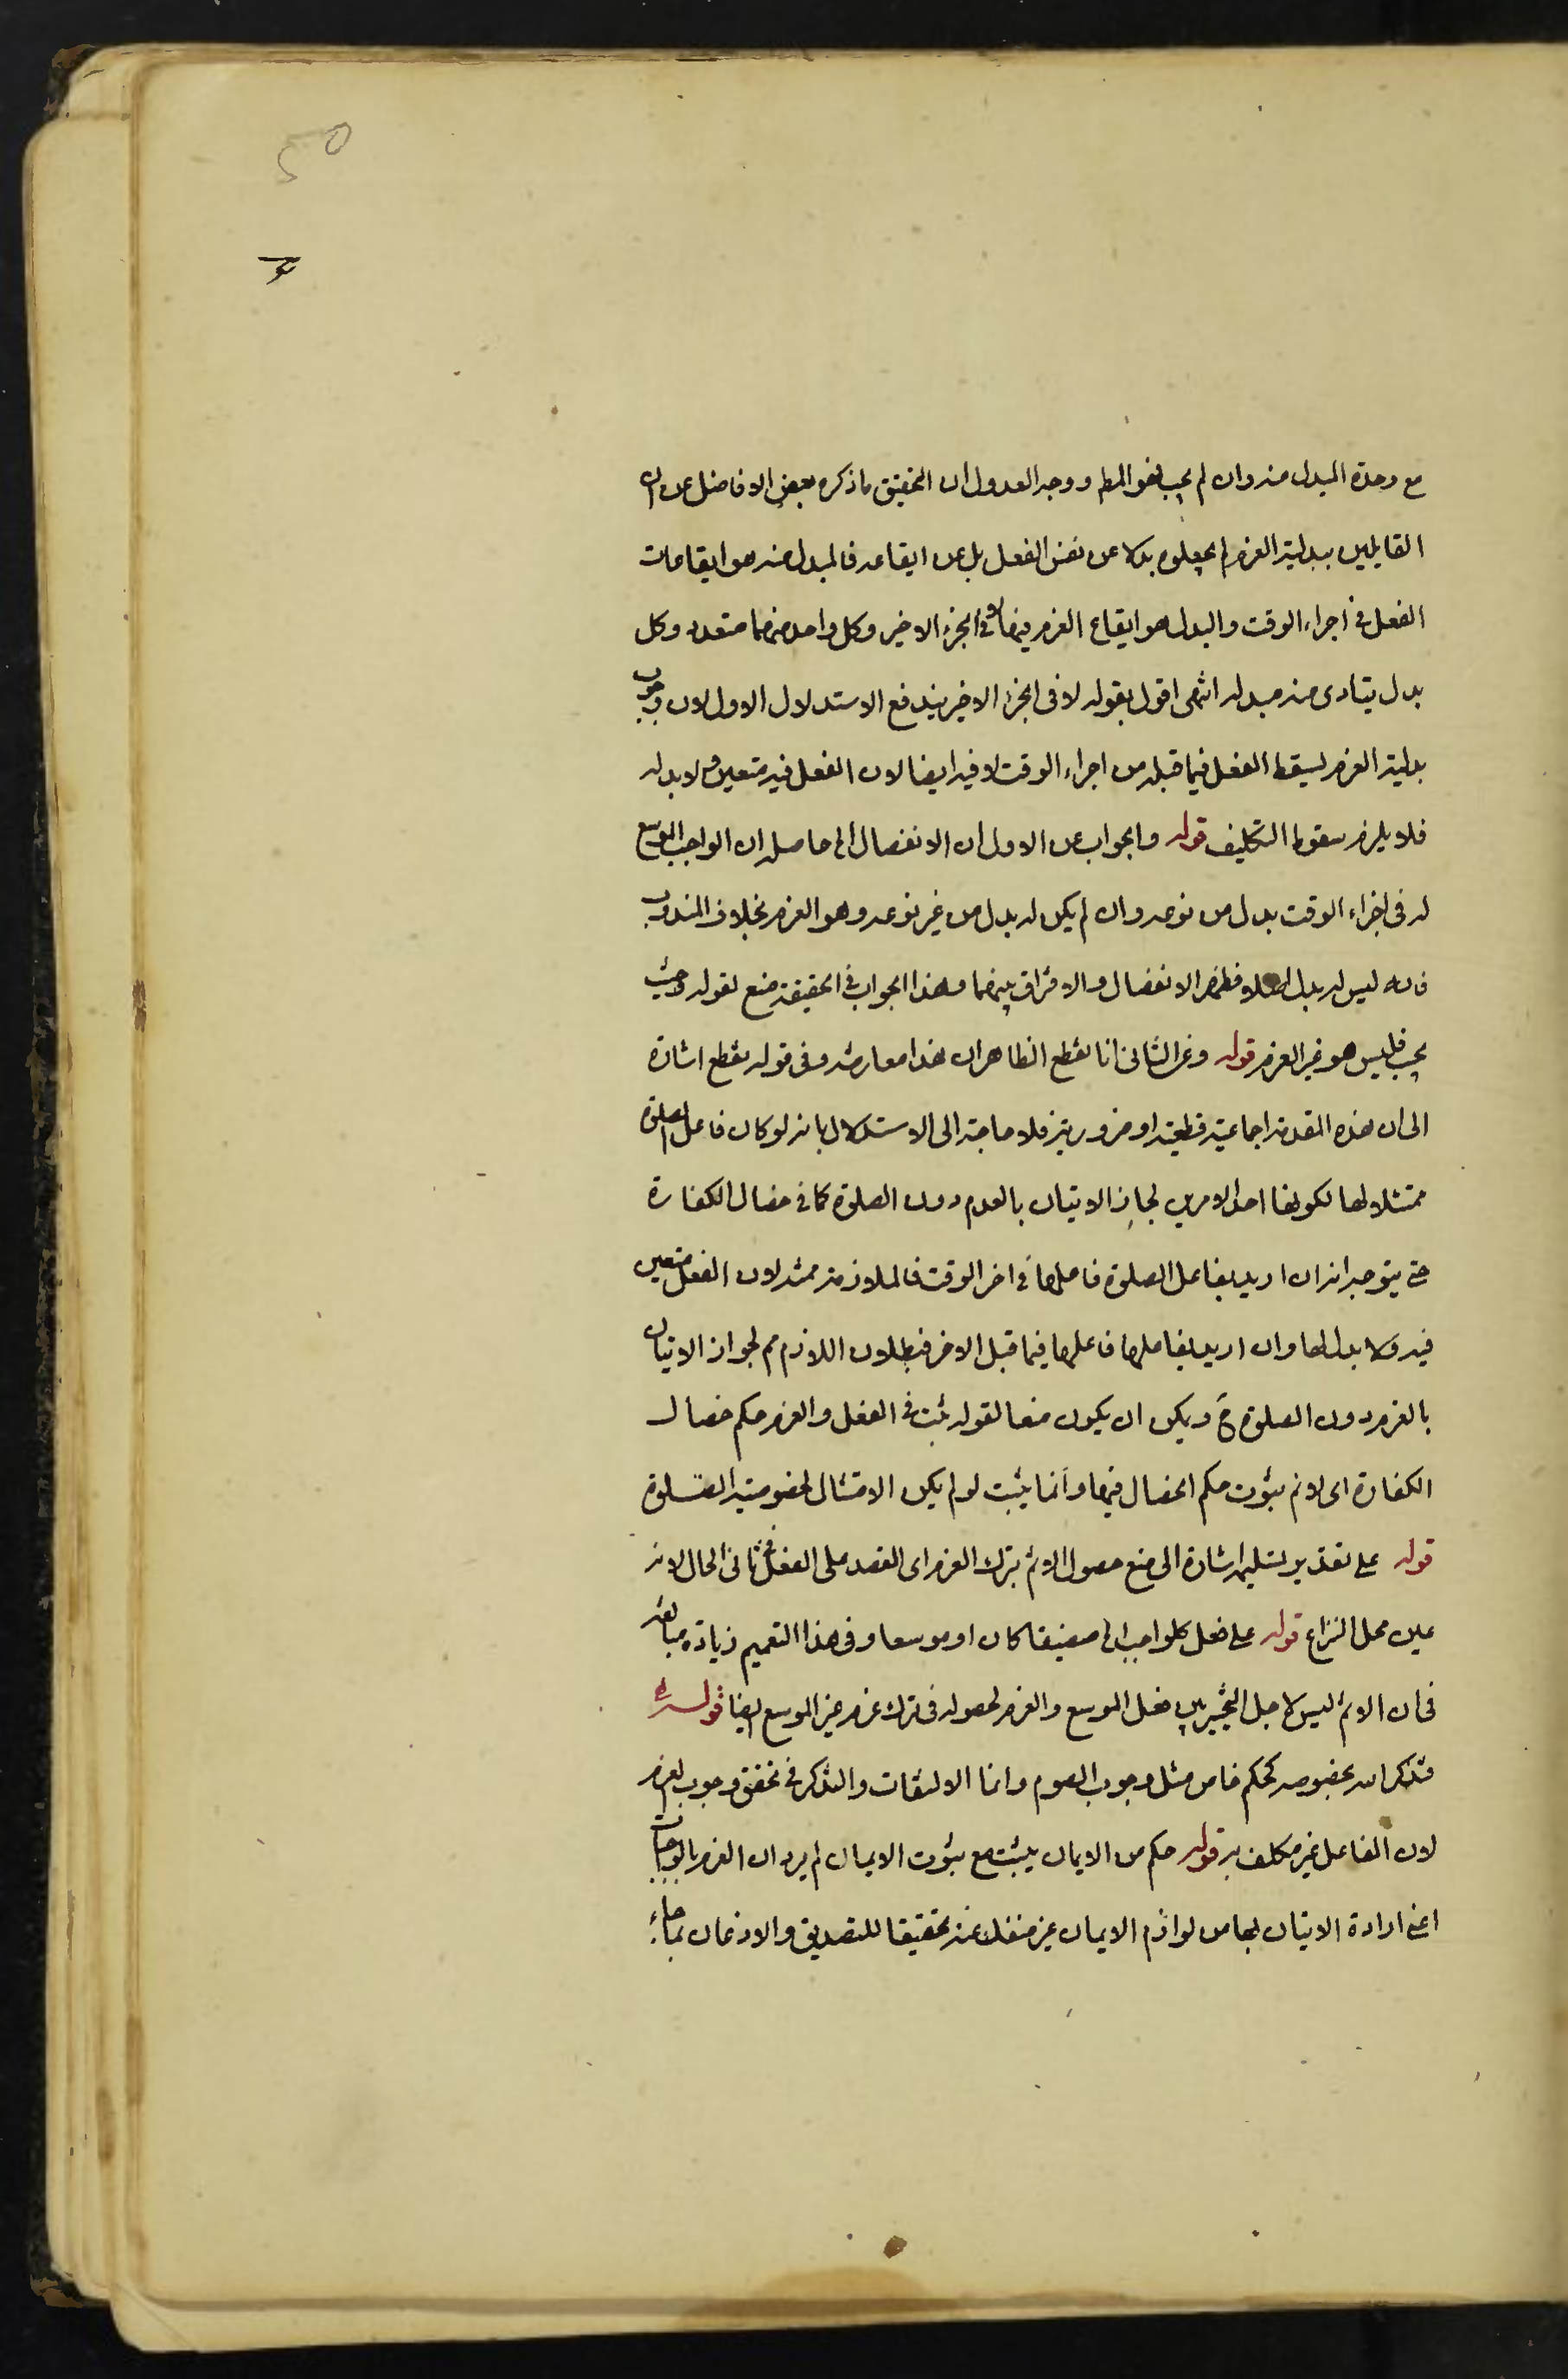 ٥٠
مع وحدة المبدل منه وان لم يجب فهو المط ووجه العدول ان التحقيق ما ذكره بعض الافاضل من ان
القايلين ببدلية العزم لم يجعلوه بدلا عن نفس الفعل بل عن ايقاعه فالمبدل منه هو ايقاعات
الفعل في اجزاء الوقت والبدل هو ايقاع العزم فيها لا في الجزء الاخير وكل واحد منهما متعدد وكل
بدل يتادى منه مبدله انتهى اقول بقوله لا في الجزء الاخير يندفع الاستدلال الاول لان وجوب
بدلية العزم ليسقط الفعل فيما قبله من اجزاء الوقت لا فيه ايضا لان الفعل فيه متعين ولا بدله
فلا يلزم سقوط التكليف قوله والجواب عن الاول ان الانفصال الخ حاصله ان الواجب الموسع
له في اجزاء الوقت بدل من نوعه وان لم يكن له بدل من غير نوعه وهو العزم بخلاف المندوب
فانه ليس له بدل اصلا فظهر الانفصال والافتراق بينهما وهذا الجواب في الحقيقة منع لقوله وحيث
يجب فليس هو غير العزم قوله وعن الثاني انا نقطع الظاهر ان هذا معارضه وفي قوله نقطع اشارة
الى ان هذه المقدمة اجماعية قطعية او ضرورية فلا حاجة الى الاستدلال بانه لو كان فاعل الصلوة
ممتثلا لها لكونها احد الامرين لجاز الاتيان بالعدم دون الصلوة كما في خصال الكفارة
حتى يتوجه انه ان اريد بفاعل الصلوة فاعلها في اخر الوقت فالملازمة ممنه لان الفعل متعين
فيه ولا بدل لها وان اريد بفاعلها فاعلها فيما قبل الاخر فبطلان اللازم مم لجواز الاتيان
بالعزم دون الصلوة ح ويكن ان يكون منعا لقوله ثبت في الفعل والعزم حكم خصال
الكفارة اى لا نم ثبوت حكم الخصال فيها وانما يثبت لو لم يكن الامتثال لخصوصية الصلوة
قوله على تقدير تسليمه اشارة الى منع حصول الاثم بترك العزم اى القصد على الفعل في ثاني الحال لانه
عين محل النزاع قوله على فعل كل واجب الخ مضيقا كان او موسعا وفي هذا التعميم زيادة مبالغة
في ان الاثم ليس لاجل التخيير بين فعل الموسع والعزم لحصوله في ترك عزم غير الموسع ايضا قوله
فتذكر انه بخصوصه كحكم خاص مثل وجوب الصوم وانما الالتفات والتذكر في تحقق وجوب العزم
لان الغافل غير مكلف به قوله حكم من الايمان يثبت مع ثبوت الايمان لم يرد ان العزم بالواجبات
اعني ارادة الاتيان بها من لوازم الايمان غير منفك عنه تحقيقا للتصديق والاذعان بما جاء